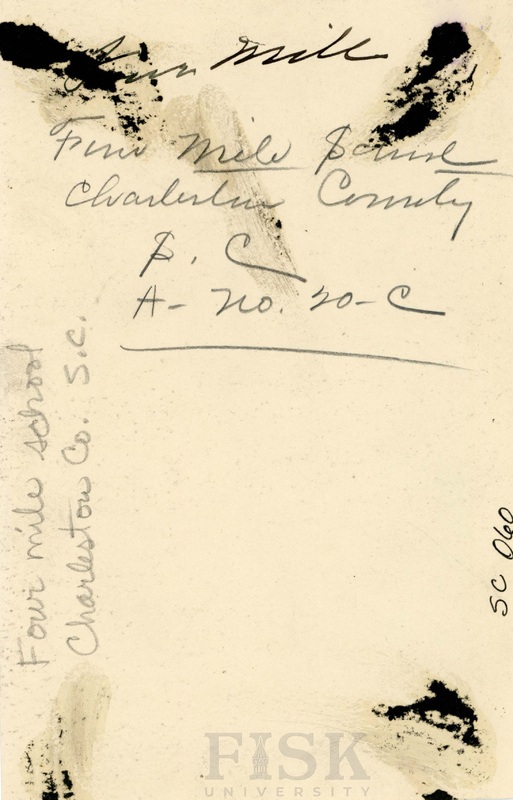 Four Mill
Four Mile School
Charleston County
S. C
A- No. 20-C
Four mile school
Charleston Co. S.C.
SC 060
FISK
UNIVERSITY